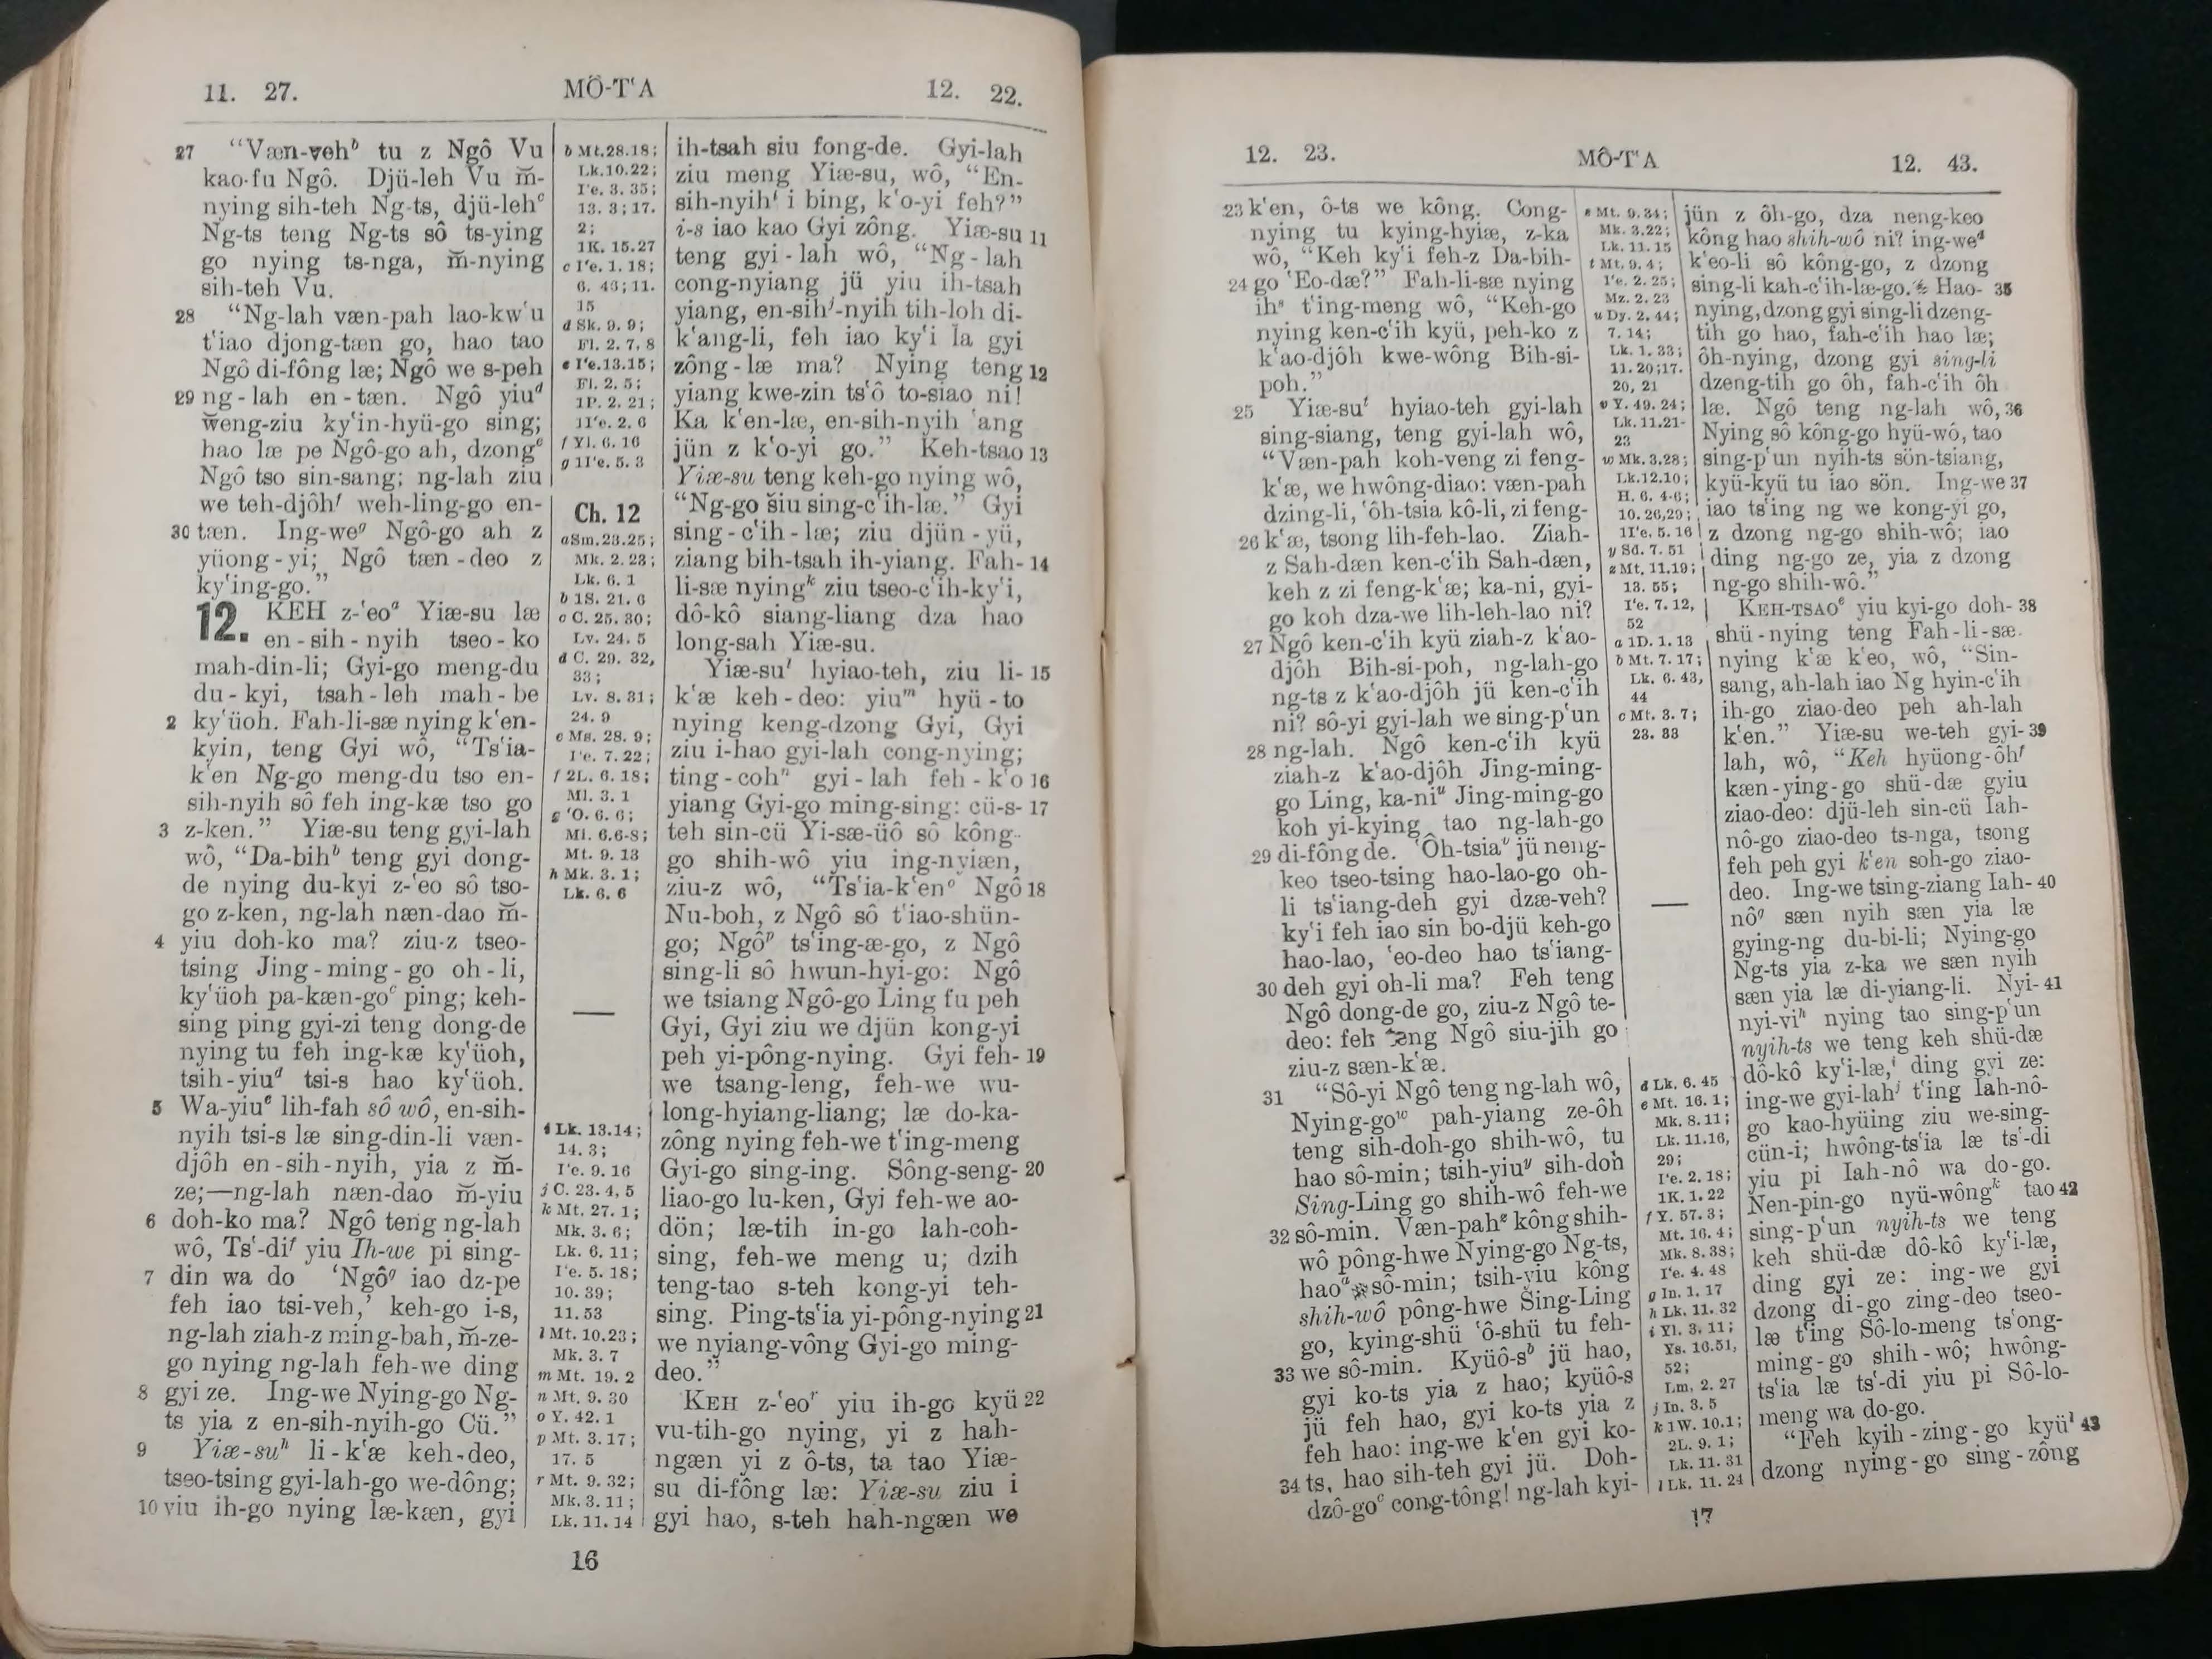 11. 27.
MÔ-TʻA
12. 22.
27 “Væn-vehᵇ tu z Ngô Vu
kao-fu Ngô. Djü-leh Vu m̆-
nying sih-teh Ng-ts, djü-lehᶜ
Ng-ts teng Ng-ts sô ts-ying
go nying ts-nga, m̆-nying
sih-teh Vu.
28 “Ng-lah væn-pah lao-kwʻu
tʻiao djong-tæn go, hao tao
Ngô di-fông læ; Ngô we s-peh
29 ng-lah en-tæn. Ngô yiuᵈ
w̆eng-ziu kyʻin-hyü-go sing;
hao læ pe Ngô-go ah, dzongᵉ
Ngô tso sin-sang; ng-lah ziu
we teh-djôhᶠ weh-ling-go en-
30 tæn. Ing-weᵍ Ngô-go ah z
yüong-yi; Ngô tæn-deo z
kyʻing-go.”
12. KEH z-ʻeoᵃ Yiæ-su læ
en-sih-nyih tseo-ko
mah-din-li; Gyi-go meng-du
du-kyi, tsah-leh mah-be
2 kyʻüoh. Fah-li-sæ nying kʻen-
kyin, teng Gyi wô, “Tsʻia-
kʻen Ng-go meng-du tso en-
sih-nyih sô feh ing-kæ tso go
3 z-ken.” Yiæ-su teng gyi-lah
wô, “Da-bihᵇ teng gyi dong-
de nying du-kyi z-ʻeo sô tso-
go z-ken, ng-lah næn-dao m̆-
4 yiu doh-ko ma? ziu-z tseo-
tsing Jing-ming-go oh-li,
kyʻüoh pa-kæn-goᶜ ping; keh-
sing ping gyi-zi teng dong-de
nying tu feh ing-kæ kyʻüoh,
tsih-yiuᵈ tsi-s hao kyʻüoh.
5 Wa-yiuᵉ lih-fah sô wô, en-sih-
nyih tsi-s læ sing-din-li væn-
djôh en-sih-nyih, yia z m̆-
ze;—ng-lah næn-dao m̆-yiu
6 doh-ko ma? Ngô teng ng-lah
wô, Tsʻ-diᶠ yiu Ih-we pi sing-
7 din wa do ‘Ngôᵍ iao dz-pe
feh iao tsi-veh,’ keh-go i-s,
ng-lah ziah-z ming-bah, m̆-ze-
go nying ng-lah feh-we ding
8 gyi ze. Ing-we Nying-go Ng-
ts yia z en-sih-nyih-go Cü.”
9 Yiæ-suʰ li-kʻæ keh-deo,
tseo-tsing gyi-lah-go we-dông;
10 yiu ih-go nying læ-kæn, gyi
b Mt.28.18;
Lk.10.22;
Iʻe. 3. 35;
13. 3;17.
2;
1K. 15.27
c Iʻe. 1. 18;
6. 46;11.
15
d Sk. 9. 9;
Fl. 2. 7, 8
e Iʻe.13.15;
Fl. 2. 5;
1P. 2. 21;
1Iʻe. 2. 6
f Yl. 6. 16
g 1Iʻe. 5. 3
Ch. 12
a Sm.23.25;
Mk. 2. 23;
Lk. 6. 1
b 1S. 21. 6
c C. 25. 30;
Lv. 24. 5
d C. 29. 32,
33;
Lv. 8. 31;
24. 9
e Ms. 28. 9;
Iʻe. 7. 22;
f 2L. 6. 18;
Ml. 3. 1
g ʻO. 6. 6;
Mi. 6.6-8;
Mt. 9. 13
h Mk. 3. 1;
Lk. 6. 6
i Lk. 13.14;
14. 3;
Iʻe. 9. 16
j C. 23. 4, 5
k Mt. 27. 1;
Mk. 3. 6;
Lk. 6. 11;
Iʻe. 5. 18;
10. 39;
11. 53
l Mt. 10.23;
Mk. 3. 7
m Mt. 19. 2
n Mt. 9. 30
o Y. 42. 1
p Mt. 3. 17;
17. 5
r Mt. 9. 32;
Mk. 3. 11;
Lk. 11. 14
ih-tsah siu fong-de. Gyi-lah
ziu meng Yiæ-su, wô, “En-
sih-nyihⁱ i bing, kʻo-yi feh?”
i-s iao kao Gyi zông. Yiæ-su 11
teng gyi-lah wô, “Ng-lah
cong-nyiang jü yiu ih-tsah
yiang, en-sihʲ-nyih tih-loh di-
kʻang-li, feh iao kyʻi la gyi
zông-læ ma? Nying teng 12
yiang kwe-zin tsʻô to-siao ni!
Ka kʻen-læ, en-sih-nyih ʻang
jün z kʻo-yi go.” Keh-tsao 13
Yiæ-su teng keh-go nying wô,
“Ng-go siu sing-cʻih-læ.” Gyi
sing-cʻih-læ; ziu djün-yü,
ziang bih-tsah ih-yiang. Fah- 14
li-sæ nyingᵏ ziu tseo-cʻih-kyʻi,
dô-kô siang-liang dza hao
long-sah Yiæ-su.
Yiæ-suˡ hyiao-teh, ziu li- 15
kʻæ keh-deo: yiuᵐ hyü-to
nying keng-dzong Gyi, Gyi
ziu i-hao gyi-lah cong-nying;
ting-cohⁿ gyi-lah feh-kʻo 16
yiang Gyi-go ming-sing: cü-s- 17
teh sin-cü Yi-sæ-üô sô kông-
go shih-wô yiu ing-nyiæn,
ziu-z wô, “Tsʻia-kʻenᵒ Ngô 18
Nu-boh, z Ngô sô tʻiao-shün-
go; Ngôᵖ tsʻing-æ-go, z Ngô
sing-li sô hwun-hyi-go: Ngô
we tsiang Ngô-go Ling fu peh
Gyi, Gyi ziu we djün kong-yi
peh yi-pông-nying. Gyi feh- 19
we tsang-leng, feh-we wu-
long-hyiang-liang; læ do-ka-
zông nying feh-we tʻing-meng
Gyi-go sing-ing. Sông-seng- 20
liao-go lu-ken, Gyi feh-we ao-
dön; læ-tih in-go lah-coh-
sing, feh-we meng u; dzih
teng-tao s-teh kong-yi teh-
sing. Ping-tsʻia yi-pông-nying 21
we nyiang-vông Gyi-go ming-
deo.”
KEH z-ʻeoʳ yiu ih-go kyü 22
vu-tih-go nying, yi z hah-
ngæn yi z ô-ts, ta tao Yiæ-
su di-fông læ: Yiæ-su ziu i
gyi hao, s-teh hah-ngæn we
16
12. 23.
MÔ-TʻA
12. 43.
23 kʻen, ô-ts we kông. Cong-
nying tu kying-hyiæ, z-ka
wô, “Keh kyʻi feh-z Da-bih-
24 go ʻEo-dæ?” Fah-li-sæ nying
ihˢ tʻing-meng wô, “Keh-go
nying ken-cʻih kyü, peh-ko z
kʻao-djôh kwe-wông Bih-si-
poh.”
25 Yiæ-suᵗ hyiao-teh gyi-lah
sing-siang, teng gyi-lah wô,
“Væn-pah koh-veng zi feng-
kʻæ, we hwông-diao: væn-pah
dzing-li, ʻôh-tsia kô-li, zi feng-
26 kʻæ, tsong lih-feh-lao. Ziah-
z Sah-dæn ken-cʻih Sah-dæn,
keh z zi feng-kʻæ; ka-ni, gyi-
go koh dza-we lih-leh-lao ni?
27 Ngô ken-cʻih kyü ziah-z kʻao-
djôh Bih-si-poh, ng-lah-go
ng-ts z kʻao-djôh jü ken-cʻih
ni? sô-yi gyi-lah we sing-pʻun
28 ng-lah. Ngô ken-cʻih kyü
ziah-z kʻao-djôh Jing-ming-
go Ling, ka-niᵘ Jing-ming-go
koh yi-kying tao ng-lah-go
29 di-fông de. ʻÔh-tsiaᵛ jü neng-
keo tseo-tsing hao-lao-go oh-
li tsʻiang-deh gyi dzæ-veh?
kyʻi feh iao sin bo-djü keh-go
hao-lao, ʻeo-deo hao tsʻiang-
30 deh gyi oh-li ma? Feh teng
Ngô dong-de go, ziu-z Ngô te-
deo: feh teng Ngô siu-jih go
ziu-z sæn-kʻæ.
31 “Sô-yi Ngô teng ng-lah wô,
Nying-goʷ pah-yiang ze-ôh
teng sih-doh-go shih-wô, tu
hao sô-min; tsih-yiuʸ sih-doh
Sing-Ling go shih-wô feh-we
32 sô-min. Væn-pahᶻ kông shih-
wô pông-hwe Nying-go Ng-ts,
haoᵃ sô-min; tsih-yiu kông
shih-wô pông-hwe Sing-Ling
go, kying-shü ʻô-shü tu feh-
33 we sô-min. Kyüô-sᵇ jü hao,
gyi ko-ts yia z hao; kyüô-s
jü feh hao, gyi ko-ts yia z
feh hao: ing-we kʻen gyi ko-
34 ts, hao sih-teh gyi jü. Doh-
dzô-goᶜ cong-tông! ng-lah kyi-
s Mt. 9. 34;
Mk. 3.22;
Lk. 11. 15
t Mt. 9. 4;
Iʻe. 2. 25;
Mz. 2. 23
u Dy. 2. 44;
7. 14;
Lk. 1. 33;
11. 20;17.
20, 21
v Y. 49. 24;
Lk. 11.21-
23
w Mk. 3.28;
Lk.12.10;
H. 6. 4-6;
10. 26,29;
1Iʻe. 5. 16
y Sd. 7. 51
z Mt. 11.19;
13. 55;
Iʻe. 7. 12,
52
a 1D. 1. 13
b Mt. 7. 17;
Lk. 6. 43,
44
c Mt. 3. 7;
23. 33
d Lk. 6. 45
e Mt. 16. 1;
Mk. 8. 11;
Lk. 11.16,
29;
Iʻe. 2. 18;
1K. 1. 22
f Y. 57. 3;
Mt. 16. 4;
Mk. 8. 38;
Iʻe. 4. 48
g In. 1. 17
h Lk. 11. 32
i Yl. 3. 11;
Ys. 16.51,
52;
Lm. 2. 27
j In. 3. 5
k 1W. 10.1;
2L. 9. 1;
Lk. 11. 31
l Lk. 11. 24
jün z ôh-go, dza neng-keo
kông hao shih-wô ni? ing-weᵈ
kʻeo-li sô kông-go, z dzong
sing-li kah-cʻih-læ-go. Hao- 35
nying, dzong gyi sing-li dzeng-
tih go hao, fah-cʻih hao læ;
ôh-nying, dzong gyi sing-li
dzeng-tih go ôh, fah-cʻih ôh
læ. Ngô teng ng-lah wô, 36
Nying sô kông-go hyü-wô, tao
sing-pʻun nyih-ts sön-tsiang,
kyü-kyü tu iao sön. Ing-we 37
iao tsʻing ng we kong-yi go,
z dzong ng-go shih-wô; iao
ding ng-go ze, yia z dzong
ng-go shih-wô.”
KEH-TSAOᵉ yiu kyi-go doh- 38
shü-nying teng Fah-li-sæ
nying kʻæ kʻeo, wô, “Sin-
sang, ah-lah iao Ng hyin-cʻih
ih-go ziao-deo peh ah-lah
kʻen.” Yiæ-su we-teh gyi- 39
lah, wô, “Keh hyüong-ôhᶠ
kæn-ying-go shü-dæ gyiu
ziao-deo: djü-leh sin-cü Iah-
nô-go ziao-deo ts-nga, tsong
feh peh gyi kʻen soh-go ziao-
deo. Ing-we tsing-ziang Iah- 40
nôᵍ sæn nyih sæn yia læ
gying-ng du-bi-li; Nying-go
Ng-ts yia z-ka we sæn nyih
sæn yia læ di-yiang-li. Nyi- 41
nyi-viʰ nying tao sing-pʻun
nyih-ts we teng keh shü-dæ
dô-kô kyʻi-læ,ⁱ ding gyi ze:
ing-we gyi-lahʲ tʻing Iah-nô-
go kao-hyüing ziu we-sing-
cün-i; hwông-tsʻia læ tsʻ-di
yiu pi Iah-nô wa do-go.
Nen-pin-go nyü-wôngᵏ tao 42
sing-pʻun nyih-ts we teng
keh shü-dæ dô-kô kyʻi-læ,
ding gyi ze: ing-we gyi
dzong di-go zing-deo tseo-
læ tʻing Sô-lo-meng tsʻong-
ming-go shih-wô; hwông-
tsʻia læ tsʻ-di yiu pi Sô-lo-
meng wa do-go.
“Feh kyih-zing-go kyüˡ 43
dzong nying-go sing-zông
17